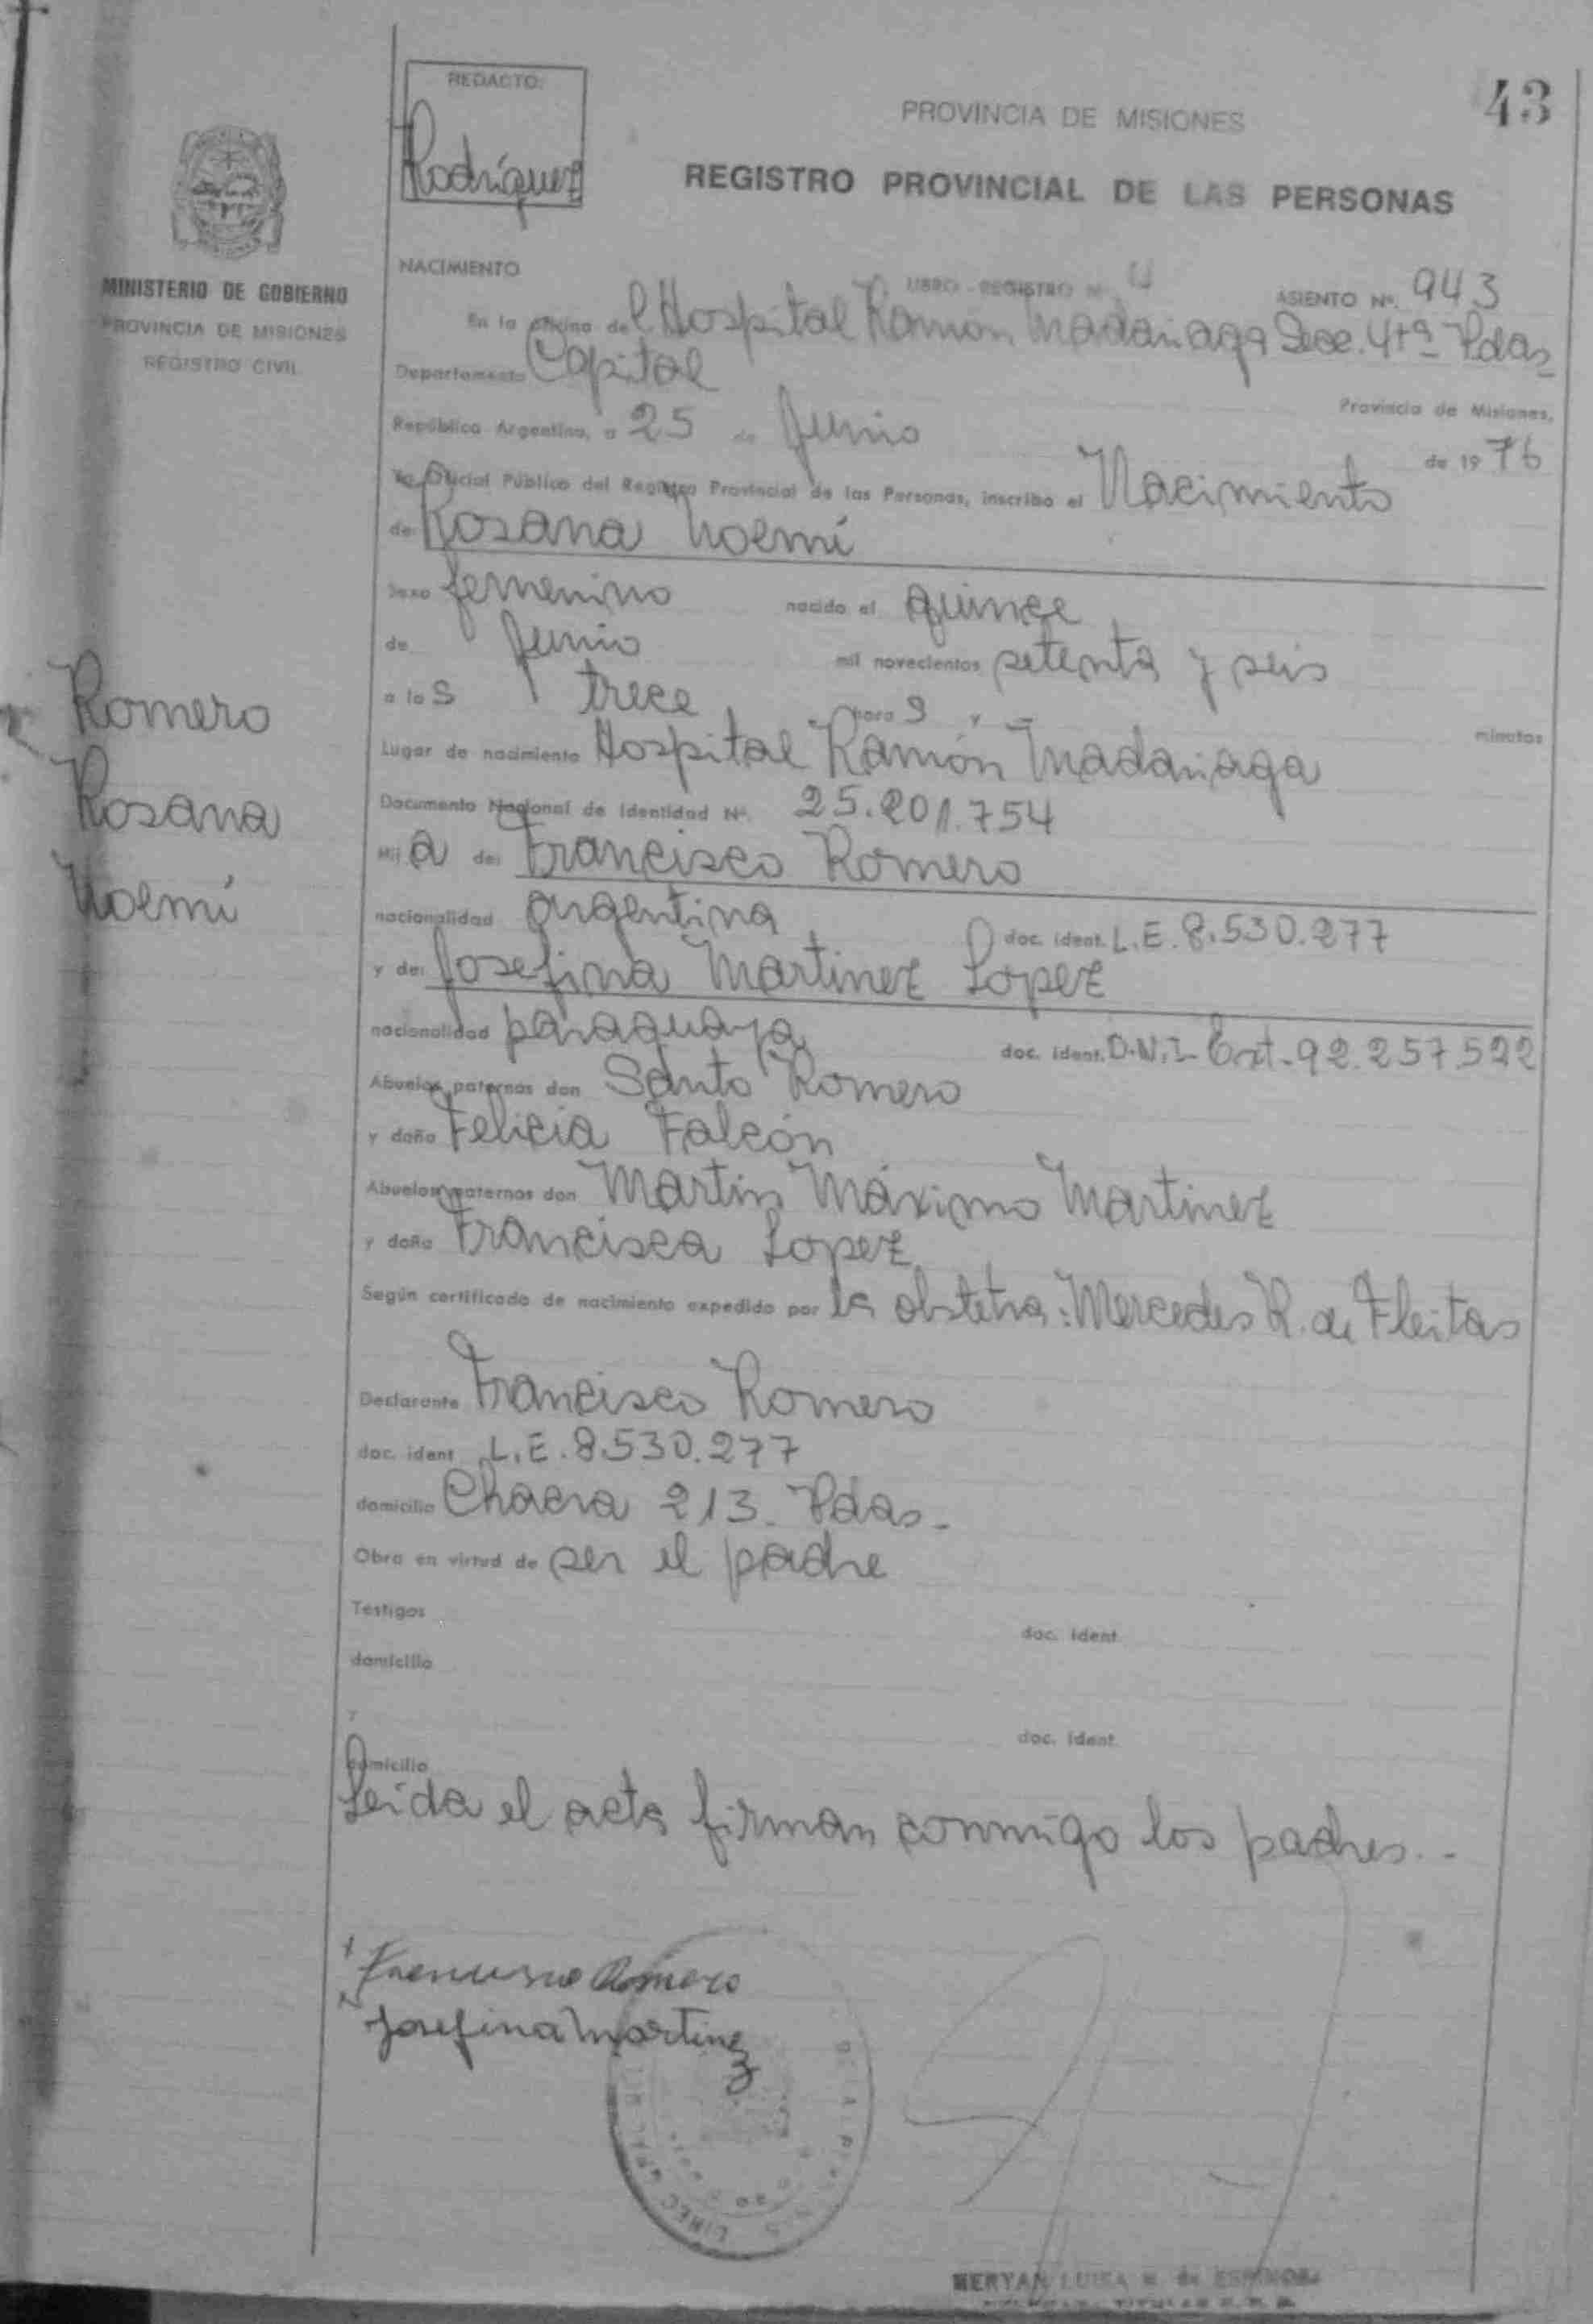 43
REDACTO:
Rodríguez
PROVINCIA DE MISIONES
REGISTRO PROVINCIAL DE LAS PERSONAS
MINISTERIO DE GOBIERNO
PROVINCIA DE MISIONES
REGISTRO CIVIL
NACIMIENTO
LIBRO - REGISTRO Nº
ASIENTO Nº. 943
En la oficina del Hospital Ramón Madariaga Secc. 4ta Pdas
Departamento Capital
Provincia de Misiones,
República Argentina, a 25 de Junio de 1976
Yo Oficial Público del Registro Provincial de las Personas, inscribo el Nacimiento
de: Rosana Noemí
Sexo femenino nacido el quince
de Junio mil novecientos setenta y seis
a las trece horas y — minutos
Lugar de nacimiento Hospital Ramón Madariaga
Documento Nacional de Identidad Nº. 25.201.754
Hija de: Francisco Romero
nacionalidad argentina doc. ident. L.E. 8.530.277
y de: Josefina Martinez Lopez
nacionalidad paraguaya doc. ident. D.N.I. Ext. 92.257.522
Abuelos paternos don Santo Romero
y doña Felicia Falcón
Abuelos maternos don Martin Máximo Martinez
y doña Francisca Lopez
Según certificado de nacimiento expedido por la obstetra: Mercedes R. de Fleitas
Declarante Francisco Romero
doc. ident L.E. 8.530.277
domicilio Chacra 213. Pdas-
Obra en virtud de ser el padre
Testigos doc. ident.
domicilio
y doc. ident.
domicilio
Leida el acta firman conmigo los padres.-
Romero
Rosana
Noemí
Francisco Romero
Josefina Martinez
MERYAN LUISA